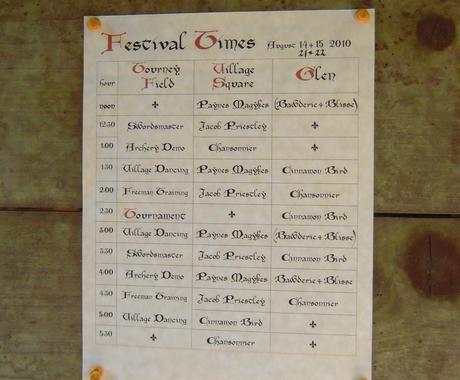 Festival Times August 14+15 2010
21+22
hour Tourney Field Village Square Glen
noon Paynes Magykes (Bawderie + Blisse)
12:30 Swordsmaster Jacob Priestley
1:00 Archery Demo Chansonnier
1:30 Village Dancing Paynes Magykes Cinnamon Bird
2:00 Freeman Training Jacob Priestley Chansonnier
2:30 Tournament Cinnamon Bird
3:00 Village Dancing Paynes Magykes (Bawderie + Blisse)
3:30 Swordsmaster Jacob Priestley Cinnamon Bird
4:00 Archery Demo Paynes Magykes Bawderie + Blisse
4:30 Freeman Training Jacob Priestley Chansonnier
5:00 Village Dancing Cinnamon Bird
5:30 Chansonnier